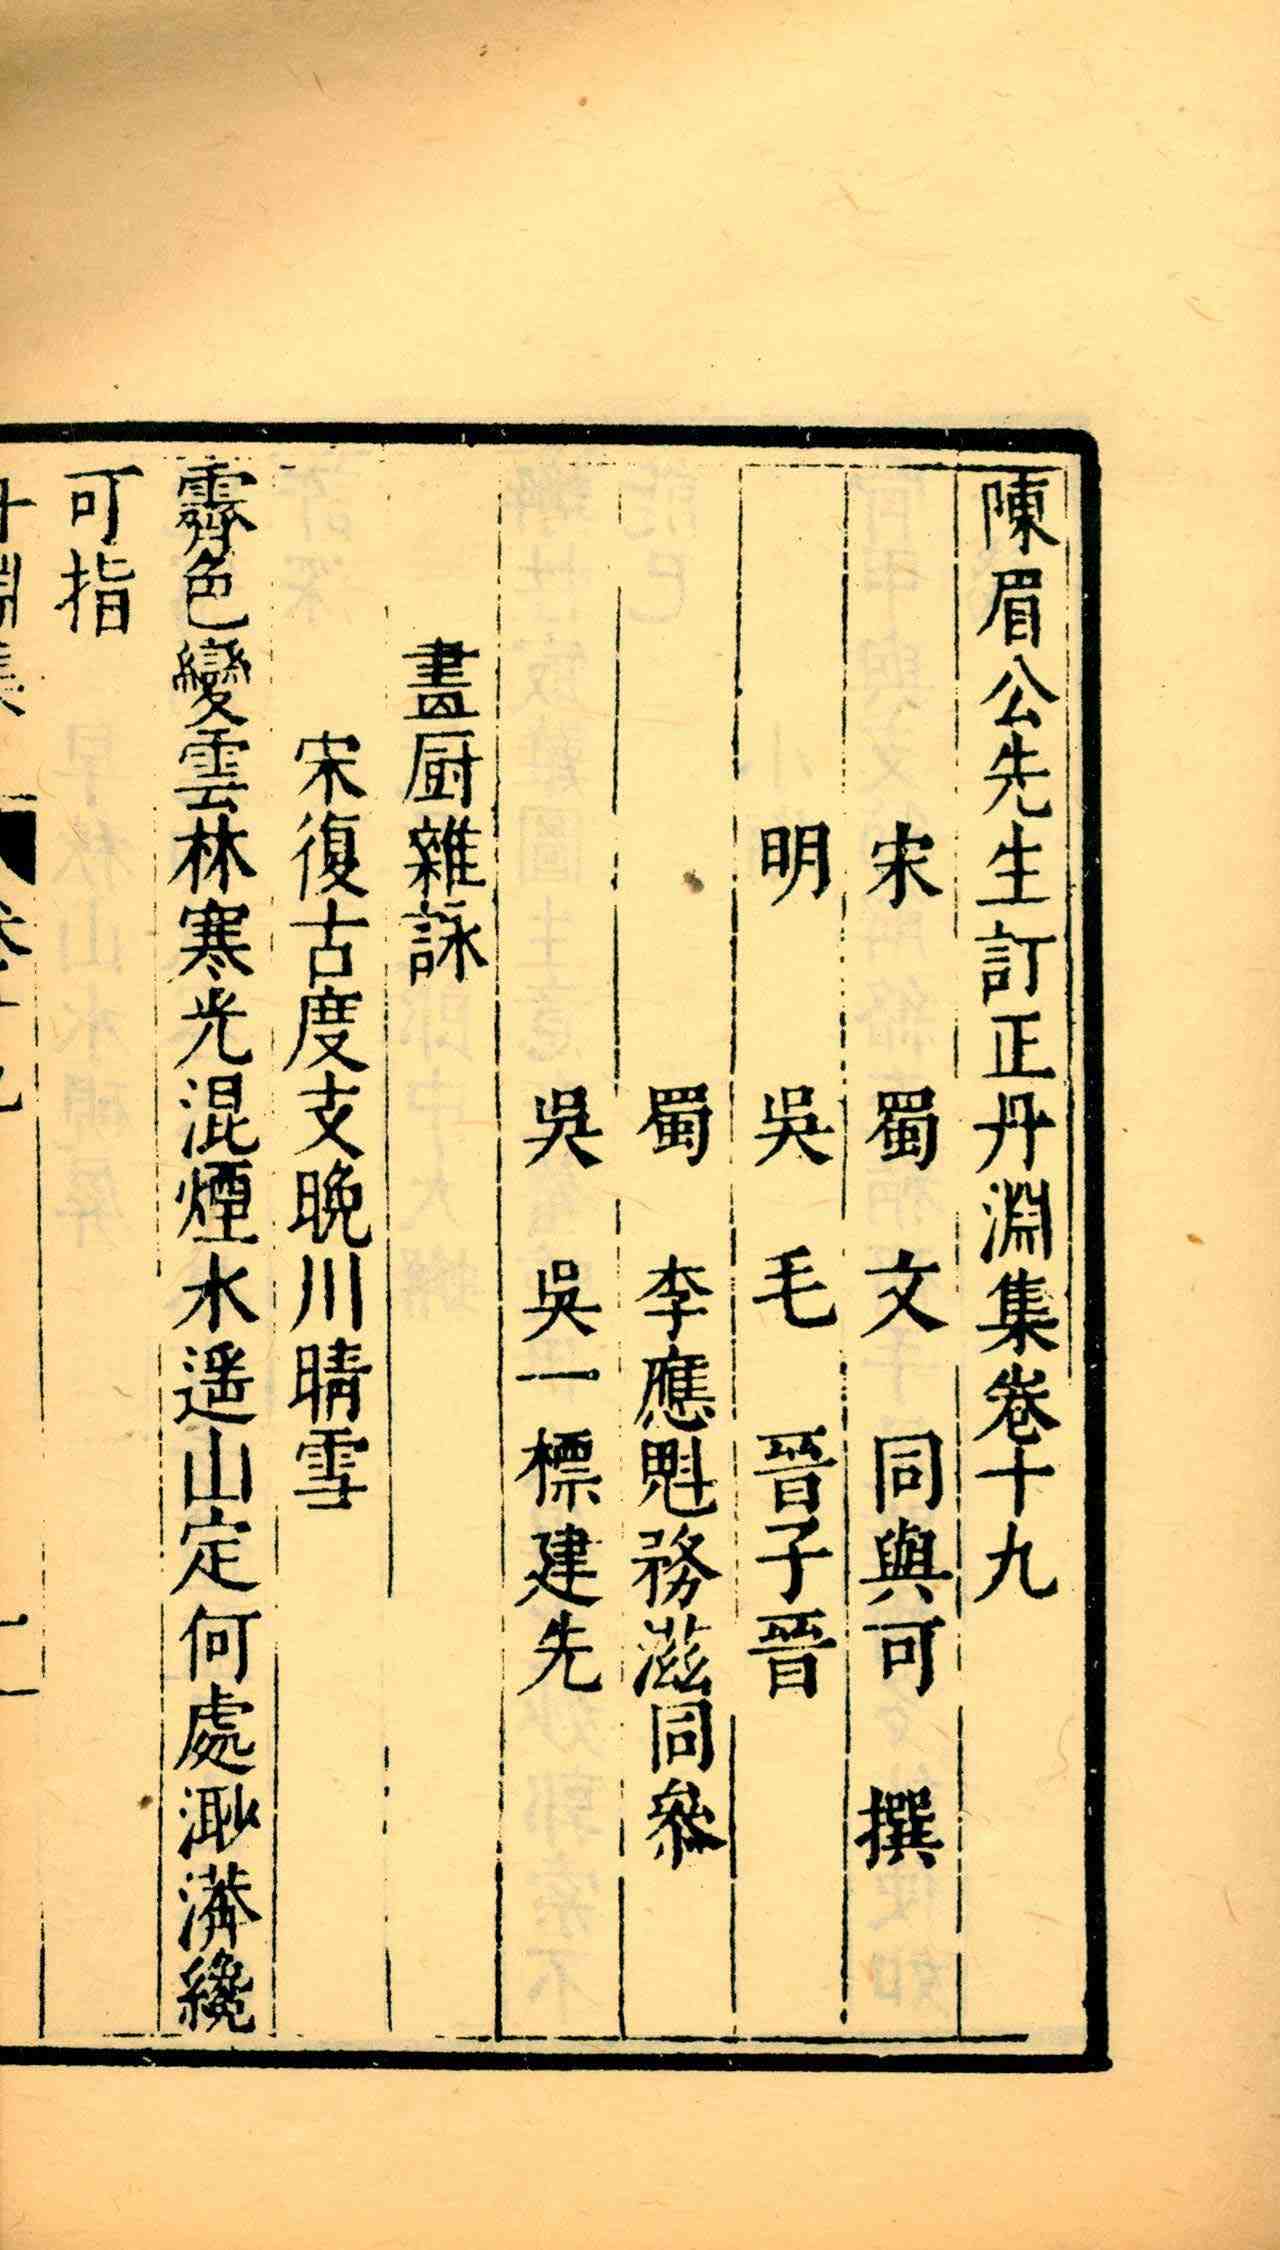 陳眉公先生訂正丹淵集卷十九
宋 蜀 文 同與可 撰
明 吳 毛 晉子晉
蜀 李應魁務滋同參
吳 吳一標建先
畫厨雜詠
宋復古度支晚川晴雪
霽色變雲林寒光混煙水遥山定何處
可指